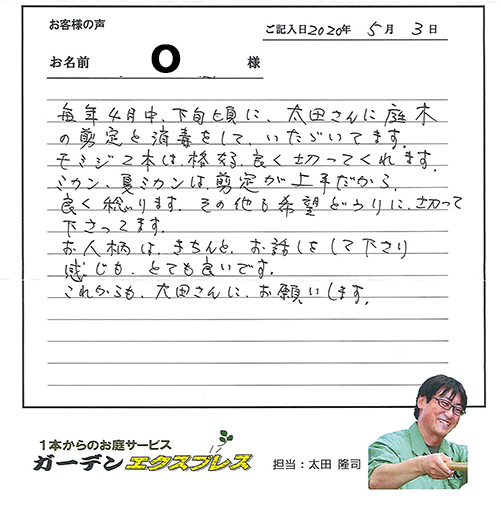 お客様の声
ご記入日2020年 5月 3日
お名前 O 様
毎年4月中、下旬頃に、太田さんに庭木
の剪定と消毒をして、いただいてます。
モミジ2本は、格好、良く切ってくれます。
ミカン、夏ミカンは剪定が上手だから、
良く実ります。その他も希望どうりに、切って
下さってます。
お人柄は、きちんと、お話しをして下さり
感じも、とても良いです。
これからも、太田さんに、お願いします。
1本からのお庭サービス
ガーデンエクスプレス
担当：太田 隆司